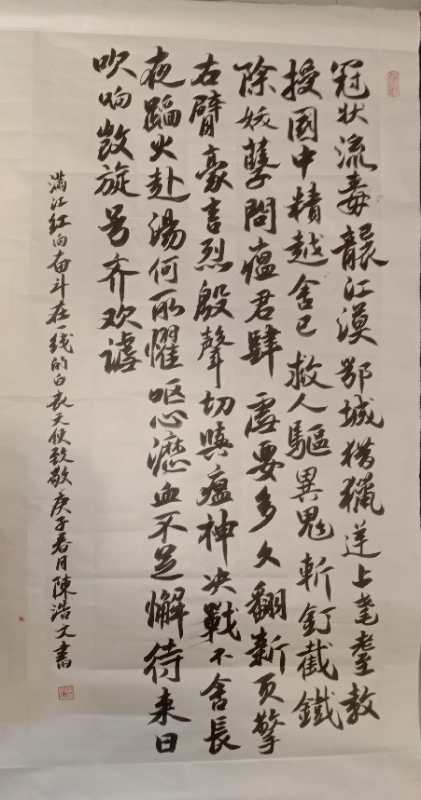 冠状流毒襲江漠鄂城猖獵逆上耄耋教
授國中精越舍己救人驅異鬼斬釘截鐵
除妖孽問瘟君肆虐要多久翻新页擎
右臂豪言烈殷聲切與瘟神决戰不舍長
夜蹈火赴湯何所懼呕心瀝血不足懈待来日
吹响凯旋号齐欢謔
满江红向奋斗在一线的白衣天使致敬庚子春月陳浩文書